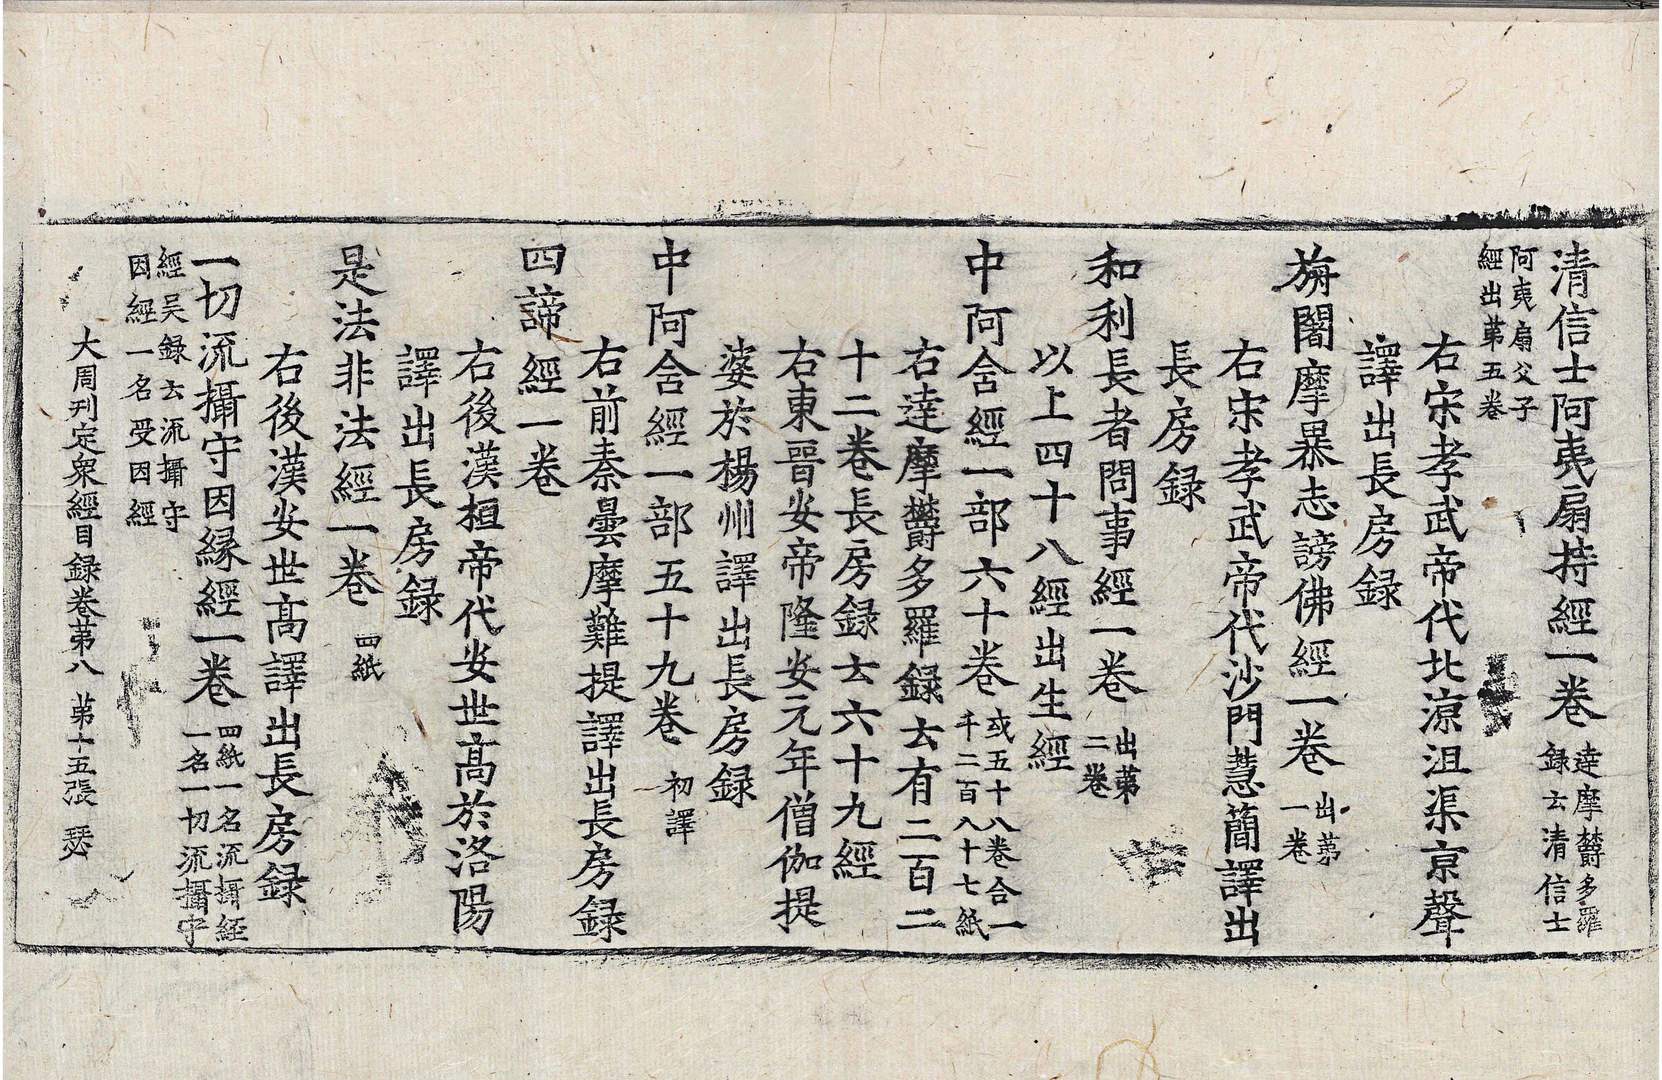 清信士阿夷扇持經一卷 達摩欝多羅
錄云清信士
阿夷扇父子
經出苐五卷
右宋孝武帝代北涼沮渠京聲
譯出長房録
旃闍摩暴志謗佛經一卷 出苐
一卷
右宋孝武帝代沙門慧簡譯出
長房録
和利長者問事經一卷 出苐
二卷
以上四十八經出生經
中阿含經一部六十卷 或五十八卷合一
千二百八十七紙
右達摩欝多羅録云有二百二
十二卷長房録云六十九經
右東晉安帝隆安元年僧伽提
婆於楊州譯出長房録
中阿含經一部五十九卷 初譯
右前秦曇摩難提譯出長房録
四諦經一卷
右後漢桓帝代安世高於洛陽
譯出長房録
是法非法經一卷 四紙
右後漢安世高譯出長房録
一切流攝守因縁經一卷 四紙一名流攝經
一名一切流攝守
經吴録云流攝守
因經一名受因經
大周刊定衆經目録卷苐八 苐十五張 瑟